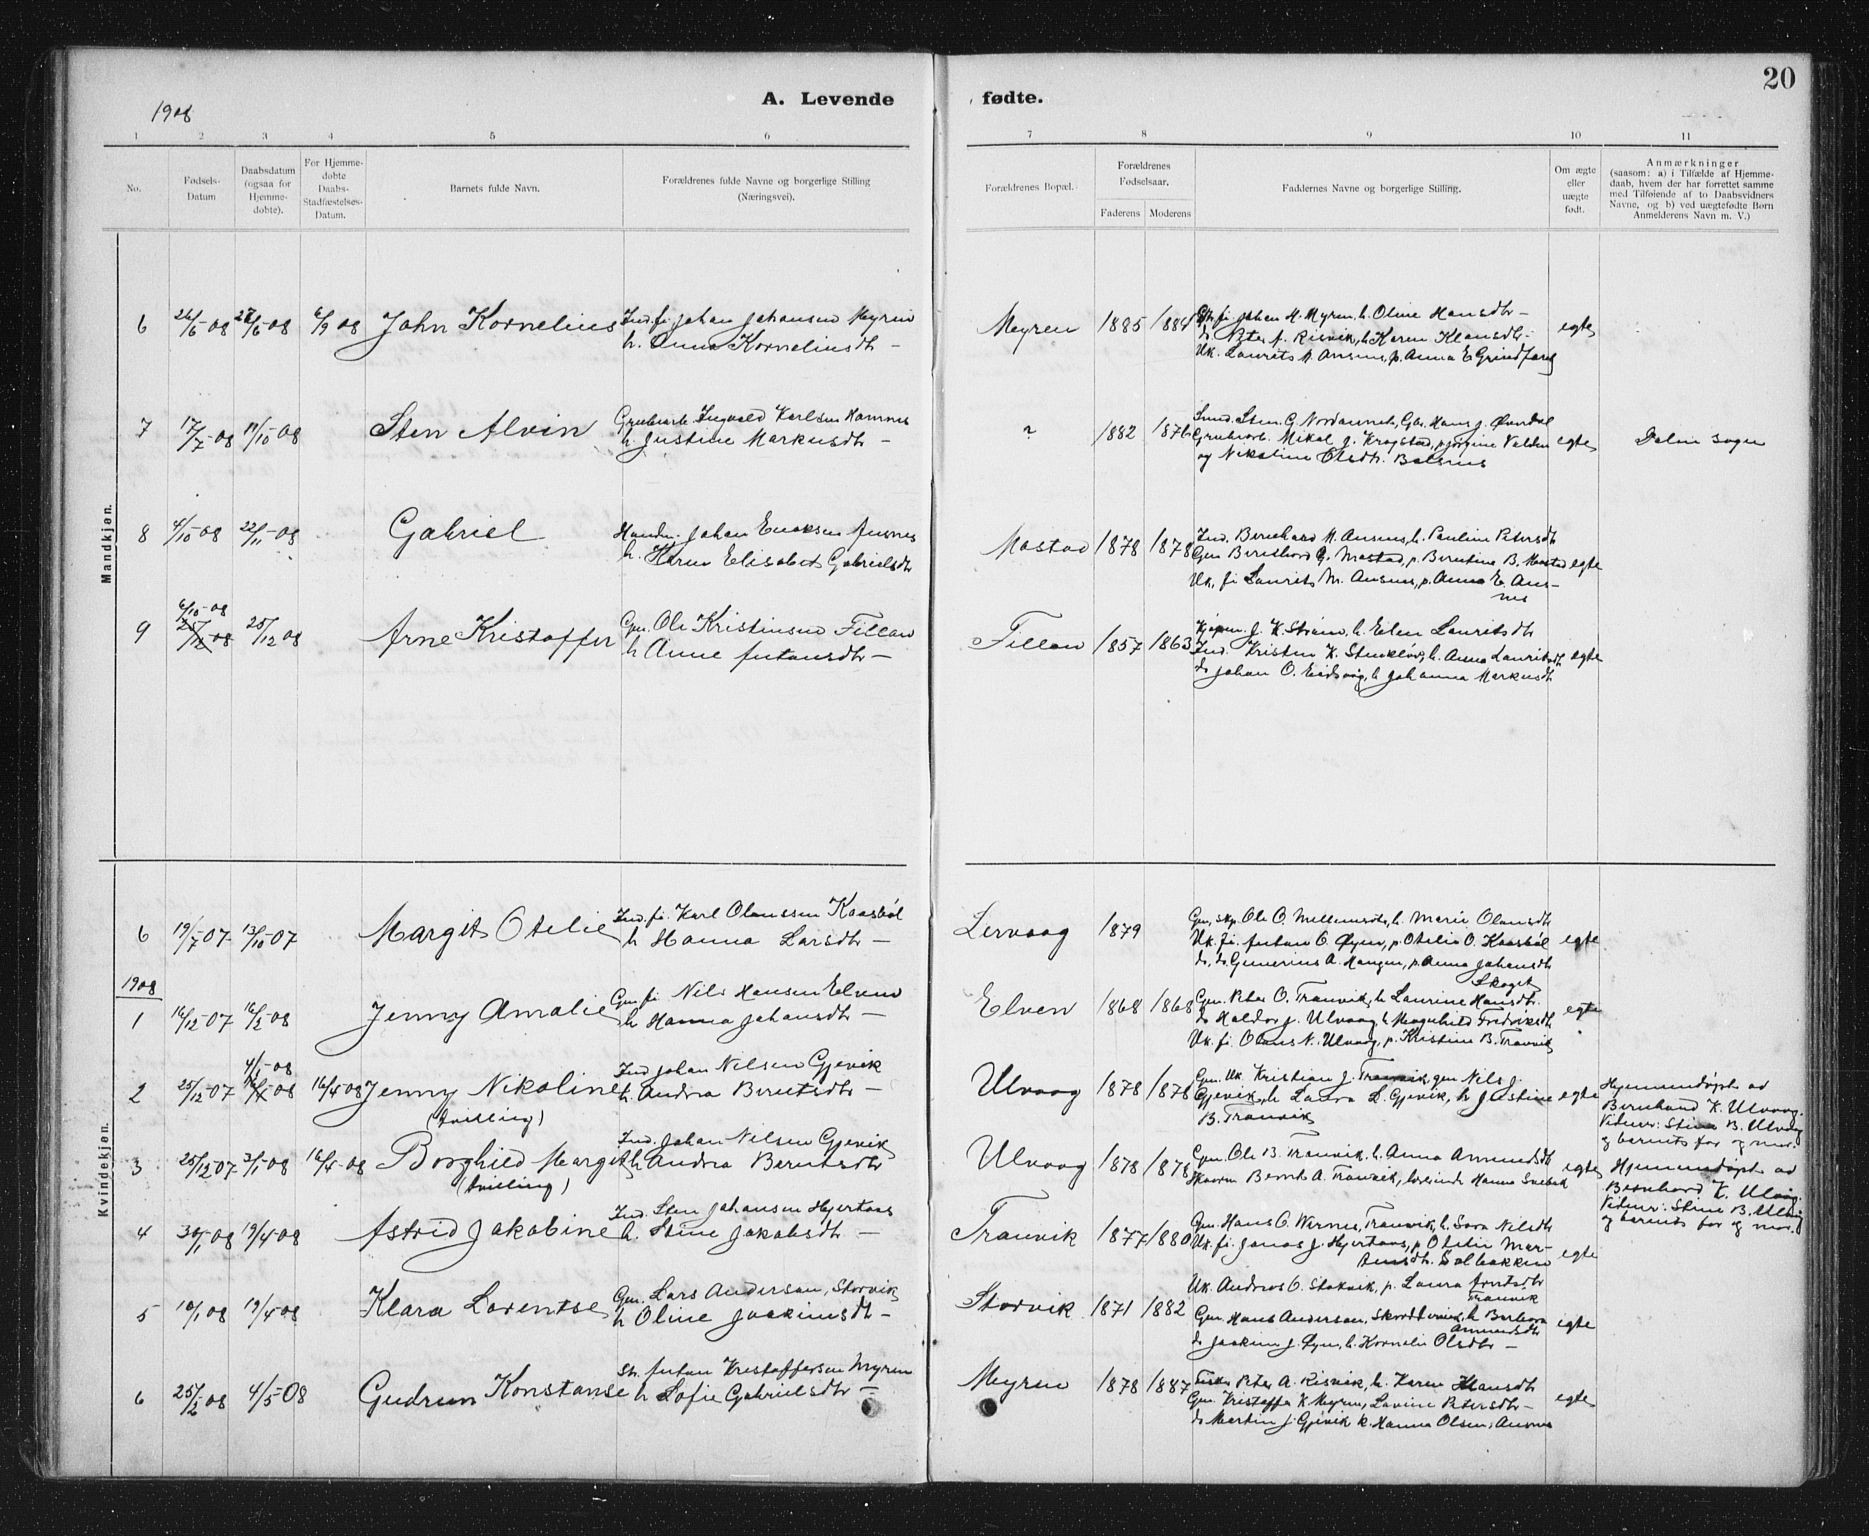 1908
A. Levende fødte.
20
1 2 3 4 5 6 7 8 9 10 11
No.
Fødsels-
Datum
Daabsdatum
(ogsaa for
Hjemme-
døbte).
For Hjemme-
døbte
Daabs-
Stadfæstelses-
Datum.
Barnets fulde Navn.
Forældrenes fulde Navne og borgerlige Stilling
(Næringsvei).
Forældrenes Bopæl.
Forældrenes
Fødselsaar.
Faderens Moderens
Faddernes Navne og borgerlige Stilling.
Om ægte
eller
uægte
født.
Anmærkninger
(saasom: a) i Tilfælde af Hjemme-
daab, hvem der har forrettet samme
med Tilføiende af to Daabsvidners
Navne, og b) ved uægtefødte Børn
Anmelderens Navn m. V.)
Mandkjøn.
6 26/6 08 27/6 08 6/9 08 John Kornelius
Ind. fi. Johan Johansen Myren
h. Anna Kornelinsdtr —
Myren 1885 1884
Johan M. Myren, h. Oline Hansdtr —
do Peter f. Risvik, h. Karen Klausdtr. —
Uk. Laurits M. Ansnes, p. Anna E Grindfarg
egte
7 17/7 08 11/10 08 Sten Alvin
Grubearb. Ingvald Karlsen Hamnes
h. Justine Markusdtr —
? 1882 1876
Smed. Sten G. Nordanneh, Gbr. Hans J. Øvrdal
Grubearb. Mikal J. Krogstad, p. Jørgine Valden
og Nikoline Olsdtr. Balsnes
egte
Dolm sogn
8 4/10 08 22/11 08 Gabriel
Handm. Johan Enoksen Ansnes
h. Karen Elisabet Gabrielsdtr
Mastad 1878 1878
Ind. Bernhard M. Ansnes, h. Pauline Petersdtr
Gm Bernthard G. Mastad, p. Berntine B. Mastad
Uk. fi Laurits M. Ansnes, p. Anna E. Ans-
nes
egte
9 6/10 08
25/12 08 25/12 08 Arne Kristoffer
Gm. Ole Kristensen Fillan
h Anne Antonsdtr —
Fillan 1857 1863
Kjøpm. J. K. Strøm, h. Elen Lauritsdtr
Ind. Kristen K. Stenkløv, h. Anna Lauritsdtr
do Johan O. Eidsvåg, h Johanna Markusdtr
egte
Kvindekjøn.
6 19/7 07 13/10 07 Margit Otelie
Ind. fi. Karl Olaussen Kaasbøl
h Hanna Larsdtr —
Lervaag 1879
Gm, skp. Ole O. Mellemsæter, h. Marie Olausdtr
Uk. fi. Anton O. Øyen, p. Otelie O. Kaasbøl
do, do. Gunerius A. Hangen, p. Anna Johansdtr
Skaget
egte
1908
1 16/12 07 16/2 08 Jenny Amalie
Gm fi Nils Hansen Elven
h Hanna Johansdtr —
Elven 1868 1868
Gm. Peter O. Tranvik, h Laurine Hansdtr.
do Haldor J. Ulvaag, h Magnhild Fredriksdtr
Uk. fi. Olaus N. Ulvaag, p. Kristine B. Tranvik
egte
2 25/12 07 4/1 08 16/4 08 Jenny Nikoline
(tvilling)
Ind Johan Nilsen Gjevik
h. Andrea Berntsdtr —
Ulvaag 1878 1878
Gm. Uk Kristian J. Tranvik, gm Nils J.
Gjevik, h Laura L. Gjevik, h Justine
B. Tranvik
egte
Hjemmedøpt av
Bernhard K. Ulvaag.
Vidner: Stina B. Ulvaag
og barnets far og mor.
3 25/12 07 3/1 08 16/4 08 Borghild Margit
(tvilling)
Ind. Johan Nilsen Gjevik
h Andrea Berntsdtr
Ulvaag 1878 1878
Gm. Ole B. Tranvik, h. Anna Amundsdtr
Skoem Bernt A. Tranvik, Hanna
egte
Hjemmedøpt av
Bernhard K. Ulvåg.
Vidner: Stina B. Ulvåg
og barnets far og mor.
4 30/1 08 19/4 08 Astrid Jakobine
Ind. Sten Johansen Hjertaas
h. Stine Jakobsdtr —
Tranvik 1877 1880
Gm. Hans O. Wernes, Tranvik, h. Sara Nilsdtr
Uk. fi. Jonas J. Hjertaas, p Otelie Mar-
tinsdtr. Solbakken
egte
5 10/1 08 19/4 08 Klara Lorentse
Gm. Lars Andersen, Storvik
h Oline Joakimsdtr —
Storvik 1871 1882
Uk. Andreas O. Stokvik, p. Laura Arntsdtr
Tranvik
Gm. Hans Andersen, h Berbara
Amundsdtr
do Joakim J. Øyen, h. Kornelie Olsdtr —
egte
6 25/2 08 4/5 08 Gudrun Konstanse
Str. Anton Kristoffersen Myren
h Sofie Gabrielsdtr —
Myren 1878 1887
Fisker Peter A. Risvik, h. Karen Klausdtr
Gm. Kristoffer K. Myren, Lovine Petersdtr —
do Martin J. Gjevik h. Hanna Olsen, Ansnes
egte